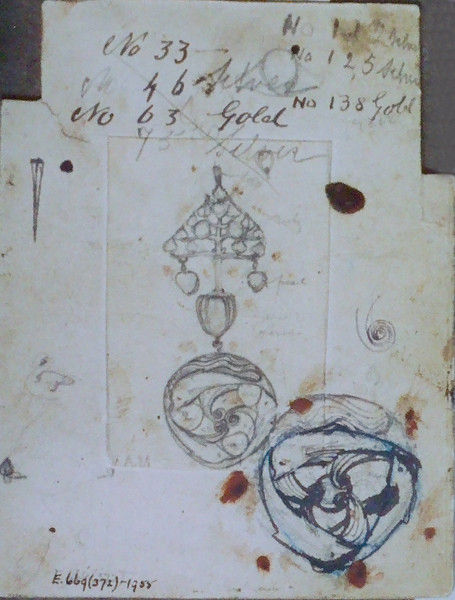 No 33
46 Silver
No 63 Gold
75 Silver
No
No 125 Silver
No 138 Gold
pearl
V&AM
E.669(372)-1955